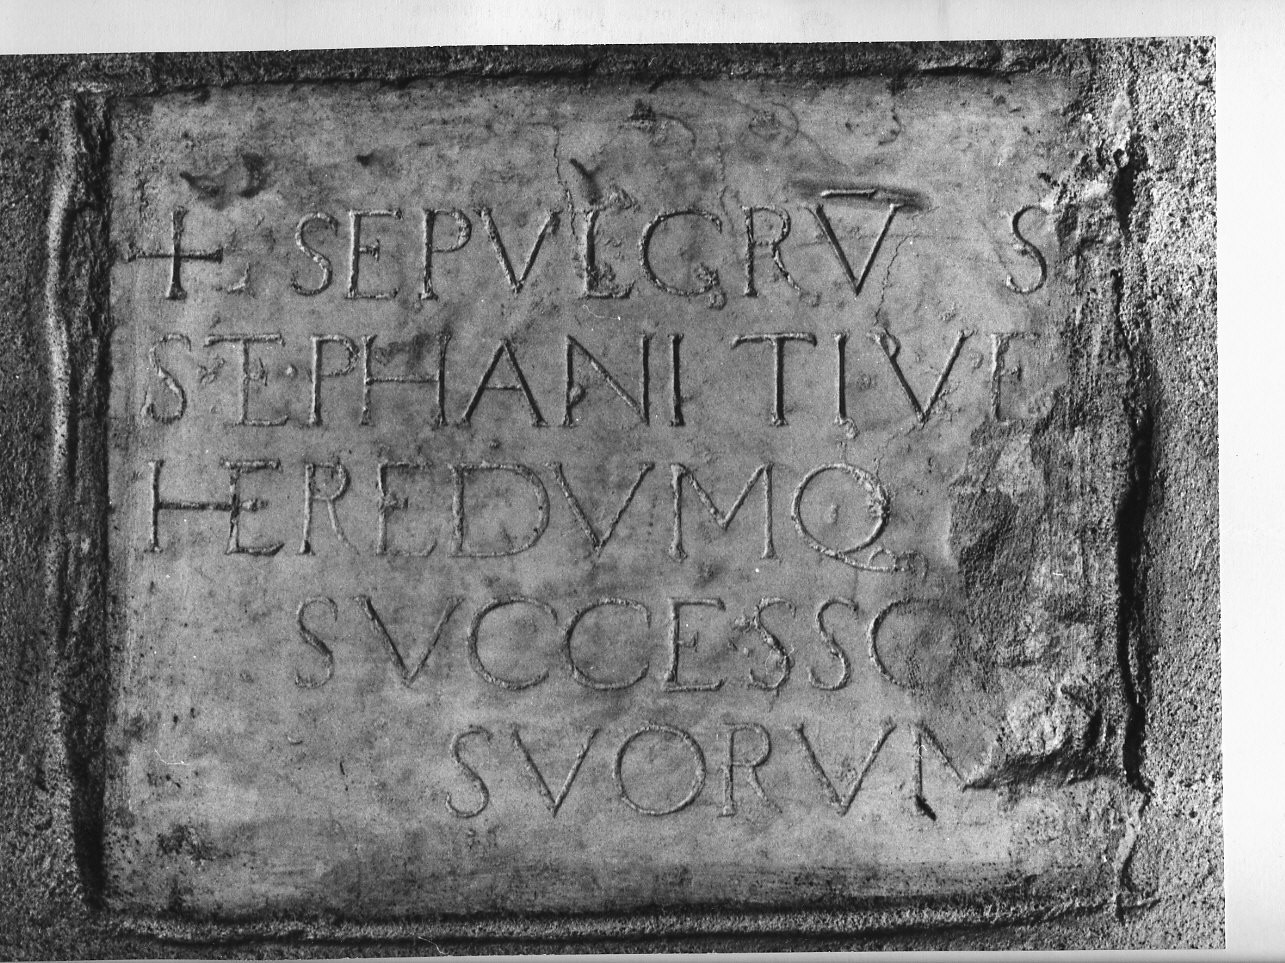 + SEPVLCRV̅ S
STEPHANI TIVE
HEREDVMQ
SVCCESSO
SVORVM